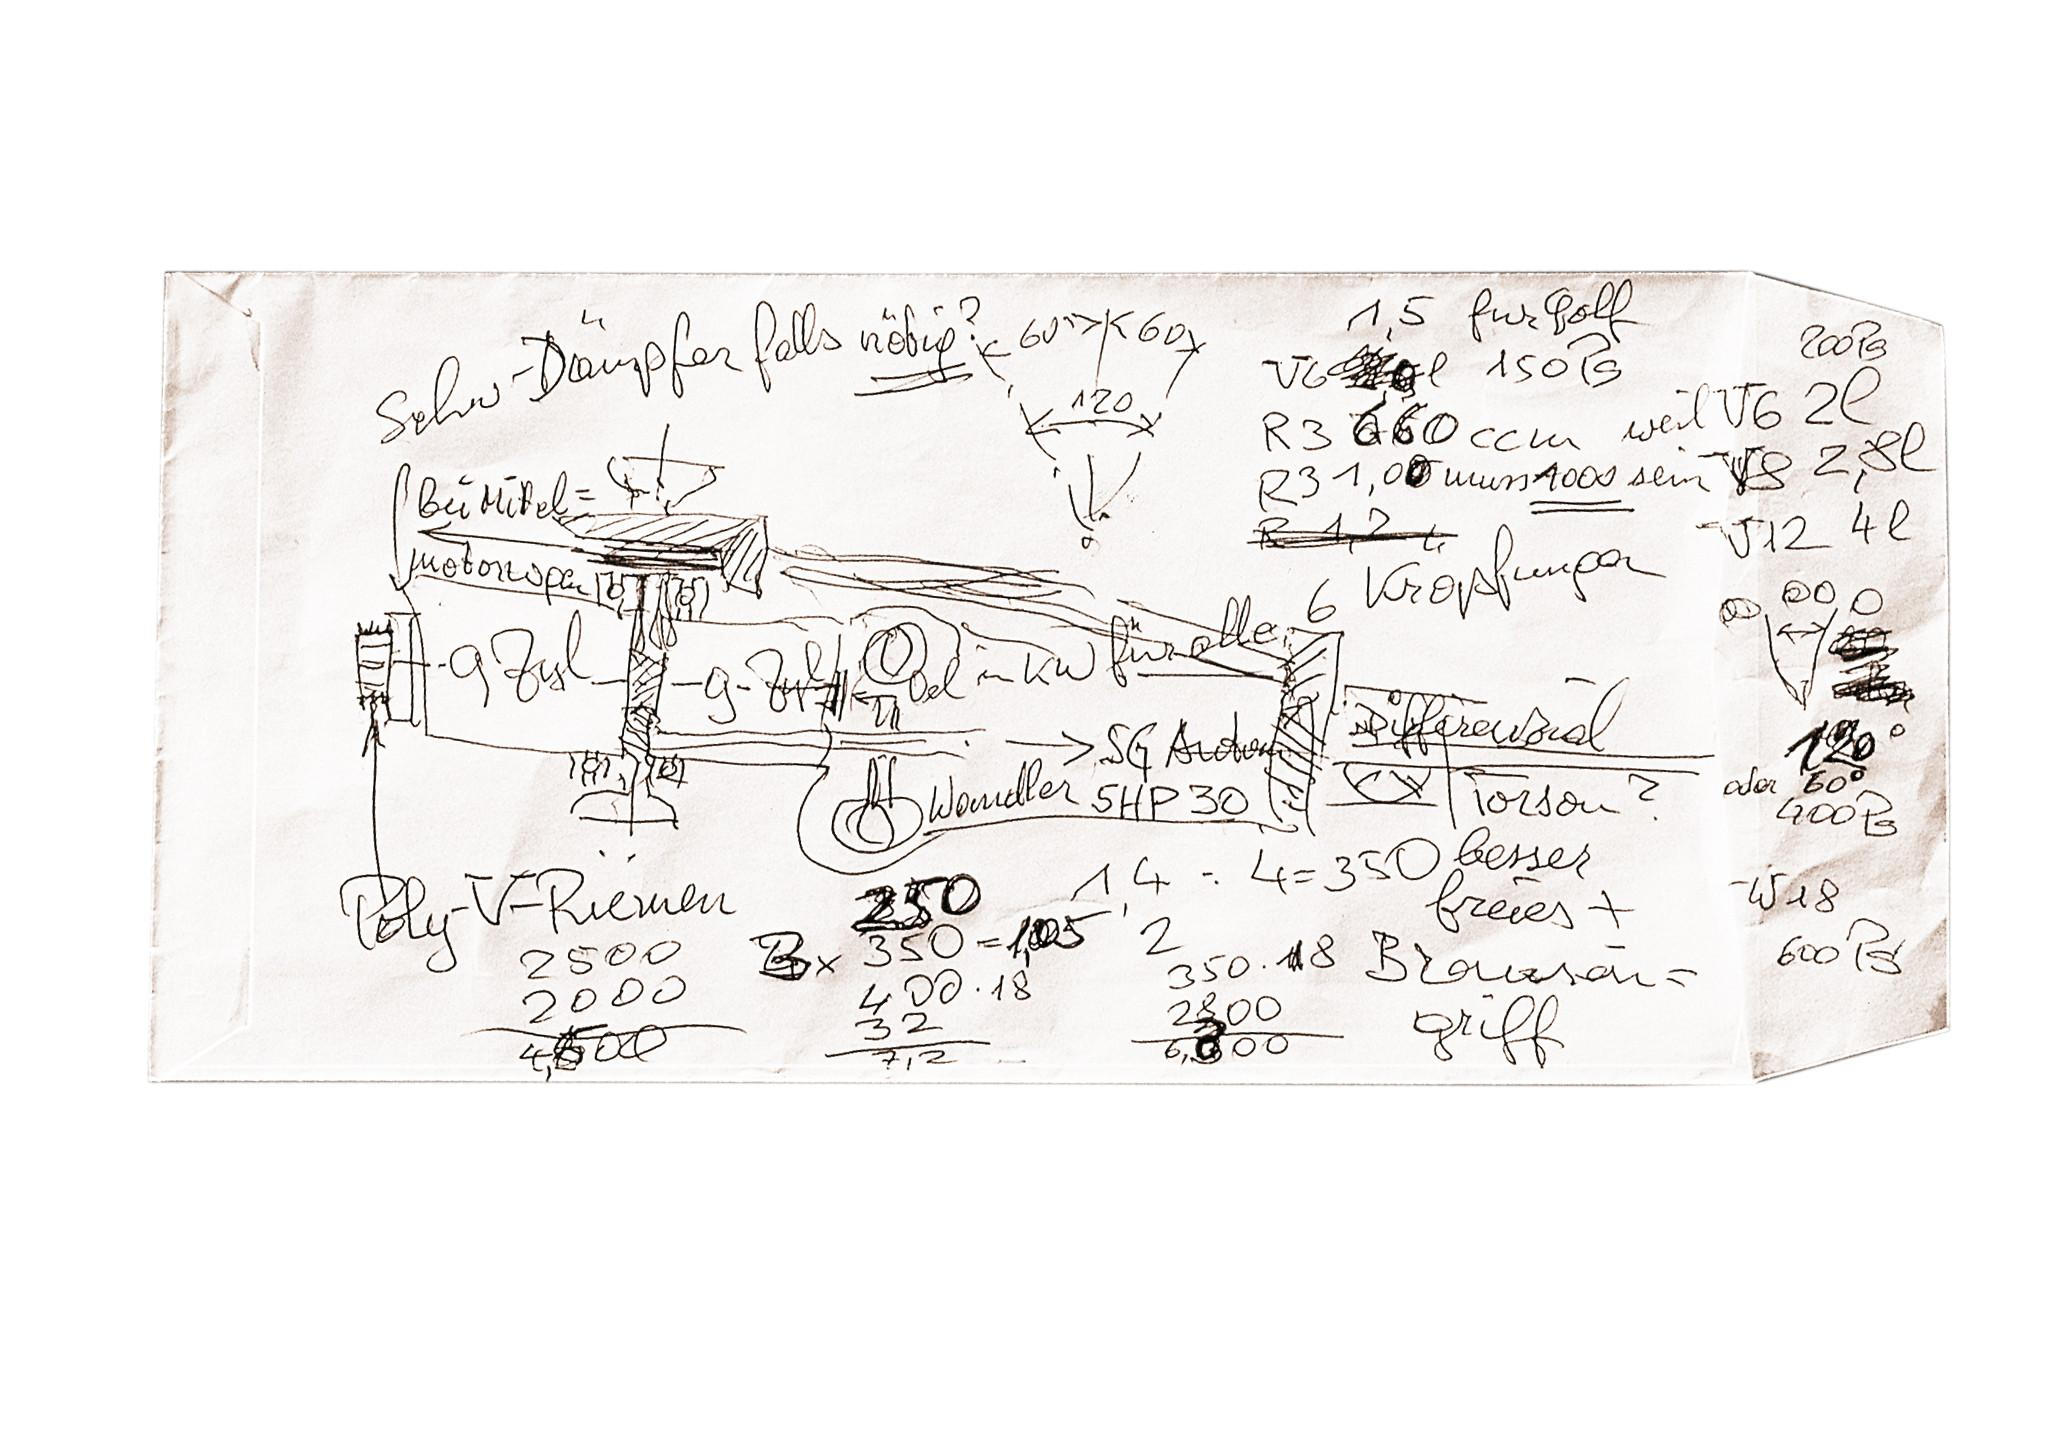 Schw-Dämpfer falls nötig?
60° 60
120
1,5 für Golf
V6 l 150 Ps
R3 660 ccm weil V6 2l
R3 1,00 muss 1000 sein V8 2,8l
R 1,2
V12 4l
200 Ps
6 Kröpfungen
Bei Mittel=
motorwagen
9 Zyl 9-Zyl Oel in KW für alle
120°
oder 60°
400 Ps
W18
600 Ps
→ 5G
Wandler 5HP30
Differenzial
Torson?
besser
freies +
Browsen=
griff
Poly-V-Riemen
2500
2000
4,500
250
3x 350 = 1,05
400 · 18
32
7,2
1,4 : 4 = 350
2
350 · 18
2800
6,300